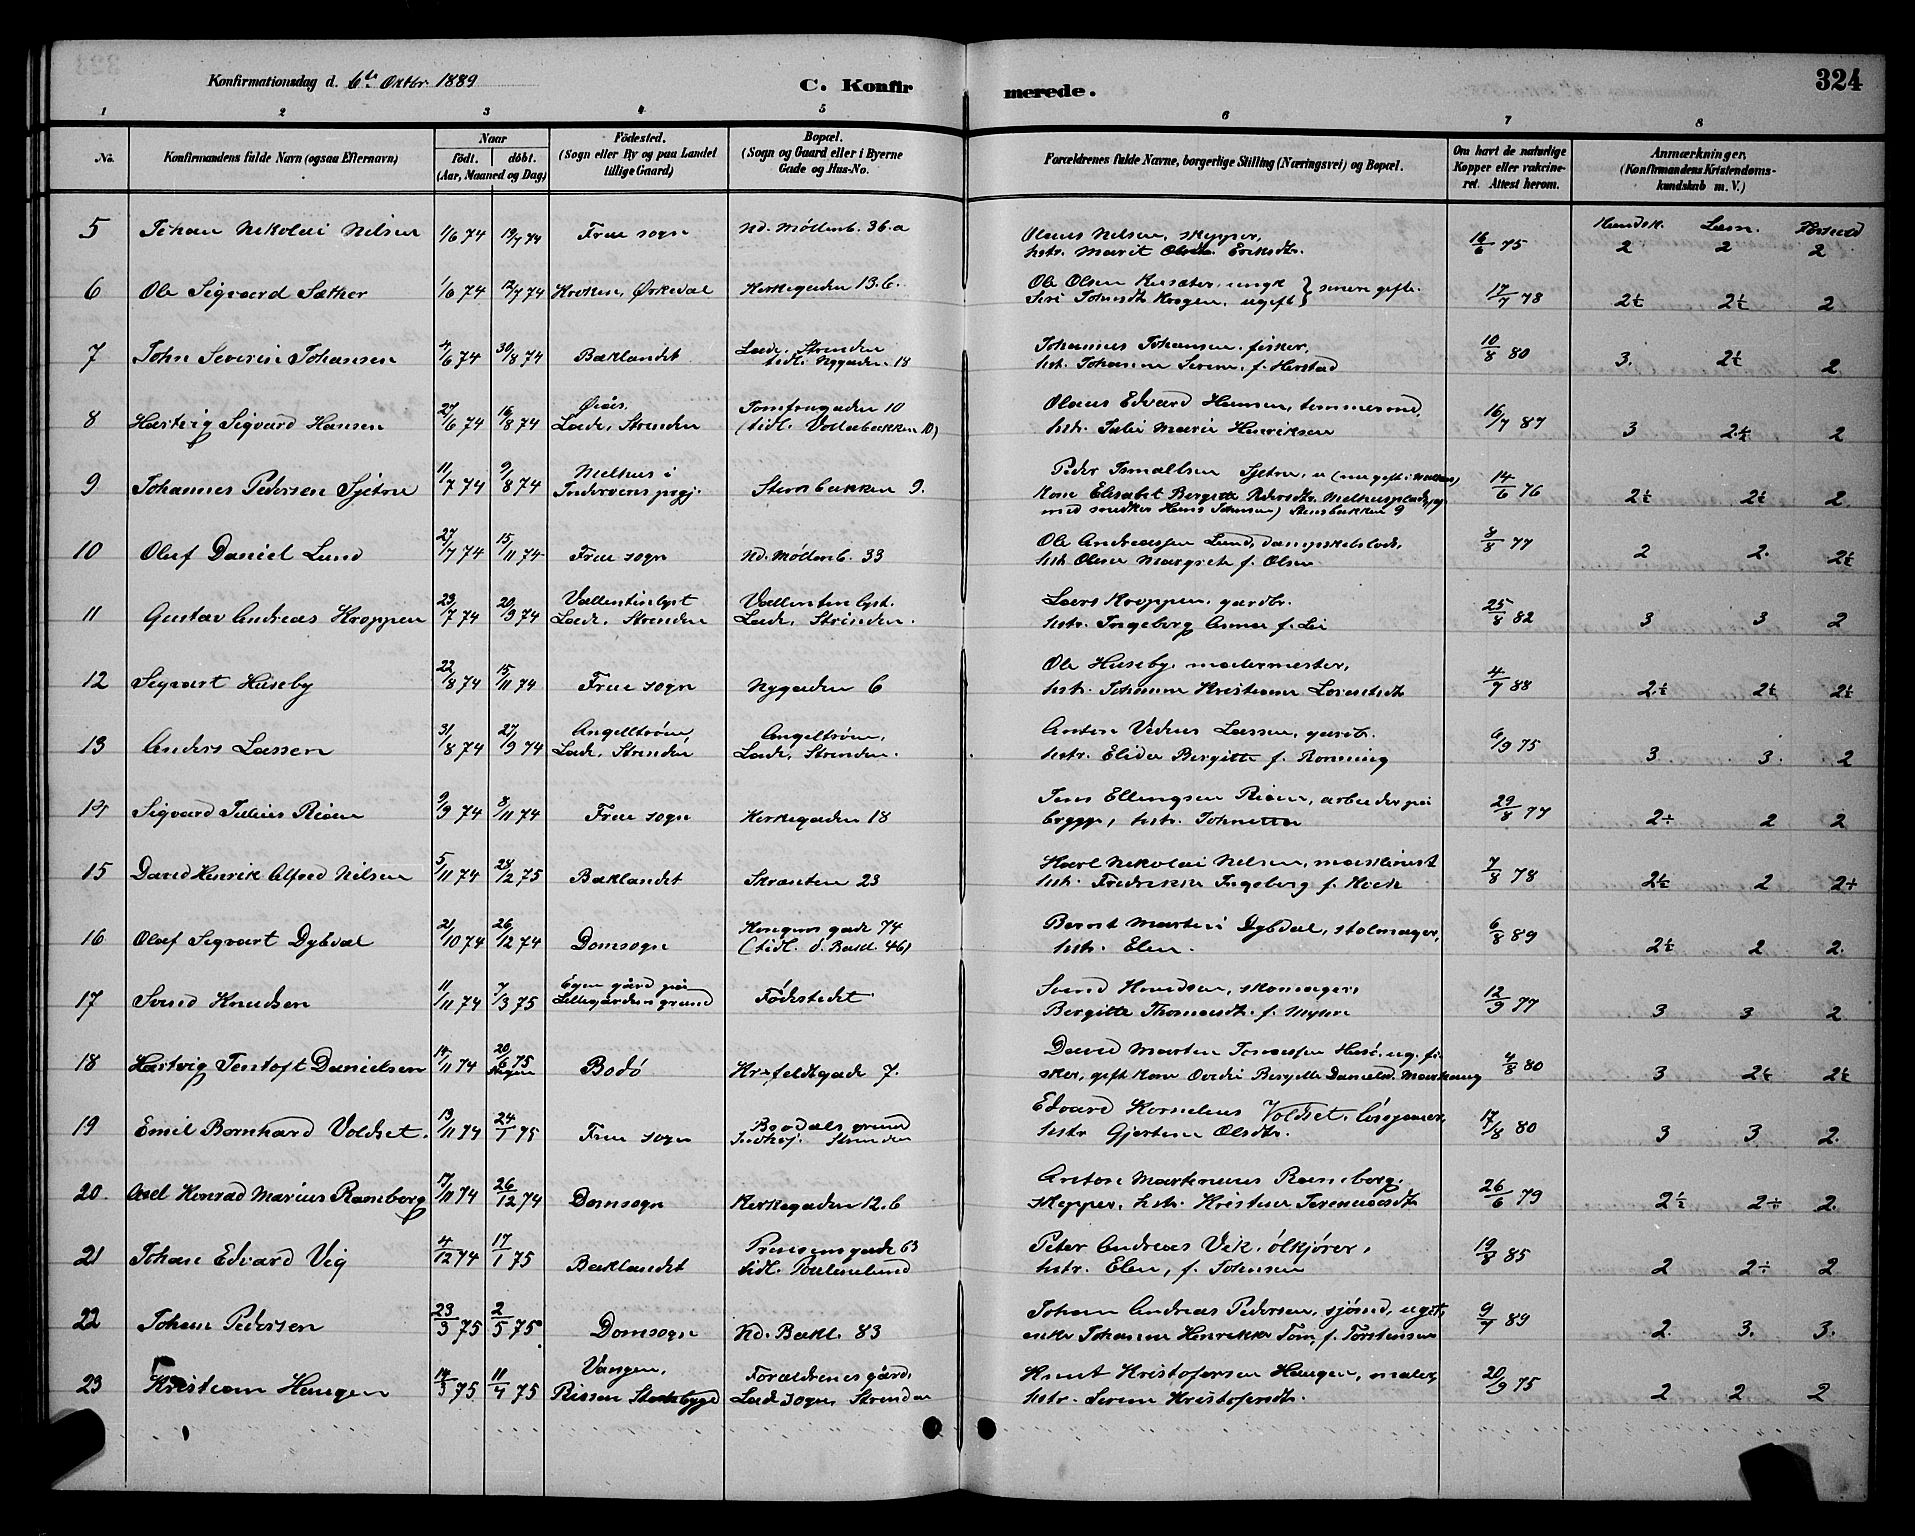 324
Konfirmationsdag d. 6te Oktbr 1889
C. Konfirmerede.
1 2 3 4 5 6 7 8
No.
Konfirmandens fulde Navn (ogsaa Efternavn)
Naar
født. døbt.
(Aar, Maaned og Dag)
Fødested.
(Sogn eller By og paa Landet
tillige Gaard)
Bopæl.
(Sogn og Gaard eller i Byerne
Gade og Hus-No.
Forældrenes fulde Navne, borgerlige Stilling (Næringsvei) og Bopæl.
Om havt de naturlige
Kopper eller vakcine-
ret. Attest herom.
Anmærkninger,
(Konfirmandens Kristendoms-
kundskab m. V.)
Kundsk. Læsn. Forhold
5 Johan Nikolai Nilsen 1/6 74 19/7 74 Frue sogn Nd. Møllenb. 36.a
Olaus Nilsen, skipper,
hstr. Marit Eriksdtr. 16/6 75 2 2 2
6 Ole Sigvard Sæther 1/6 74 12/7 74 Kroken, Ørkedal Kirkegaden 13.b.
Ole Olsen, ungk } senere gifte.
Siri Johnsdtr Krogen, ugift 17/7 78 2½ 2½ 2
7 John Severin Johansen 4/6 74 30/8 74 Baklandet Lade, Strinden
tidl. Nygaden 18
Johannes Johansen, fisker,
hstr. Johanna Serine, f. Herstad 10/8 80 3. 2½ 2
8 Hartvig Sigvard Hansen 27/6 74 16/8 74 Lade, Strinden
Jomfrugaden 10
(tidl. Vollabakken 10)
Olaus Edvard Hansen, tømmermd,
hstr. Julie Marie Henriksen 16/7 87 3 2½ 2
9 Johannes Pedersen Sjetne 11/7 74 9/8 74 Melhus i
Inderøens prgj. Stensbakken 9.
Peder Ismaelsen Sjetne,
Kone Elisabet Bergitte Pedersdtr. Melhusplads,
med snedker Hans Johnsen) Stensbakken 9 14/6 76 2½ 2½ 2
10 Oluf Daniel Lund 27/7 74 15/11 74 Frue sogn Nd. Møllenb. 33
Ole Andreassen Lund,
hstr. Oline Margrete f. Olsen 77 2 2. 2½
11 Gustav Andreas Kroppen 29/7 74 20/9 74 Vallentinlyst
Lade, Strinden Vallentinlyst.
Lade, Strinden.
Lars Kroppen, gardbr.
hstr. Ingeborg Anna f. Lie 25/8 82 3 3 2
12 Sigvart Huseby 22/8 74 15/11 74 Frue sogn Nygaden 6
Ole Huseby, malermester,
hstr. Johanna Kristiane 4/7 88 2½ 2½ 2½
13 Anders Lassen 31/8 74 27/9 74 Angelltrøen,
Lade, Strinden Angeltrøen,
Lade, Strinden.
Anton Lassen, gardb.
hstr. Elida Bergitte f. Rønning 6/9 75 3 3. 2
14 Sigvard Julius Risen 9/9 74 8/11 74 Frue sogn Kirkegaden 18
Jens Ellingsen Risen, arbeider på
brygge, hstr. 29/8 77 2÷ 2 2
15 David Henrik Alfred Nilsen 5/11 74 28/2 75 Baklandet Skansten 23
Karl Nikolai Nilsen, maskinist
hstr. Fredrikke Ingeborg f. 7/8 78 2½ 2 2÷
16 Olaf Sigvart Dybdal 21/10 74 26/12 74 Domsogn Kongens gade 74
(tidl. Ø. Bakl. 46)
Bernt Martin Dybdal, stolmager,
hstr. Elen. 6/8 89 2½ 2 2.
17 Svend Knudsen 11/11 74 7/3 75 Egen gård på
Lillegårdens grund Fødestedet
Svend Knudsen, skomager,
Bergitte Thomasdt. f. Myhre 12/9 77 3 3 2
18 Hartvig Tentoft Danielsen 14/11 74 20/6 75 Bodø gade 7.
David Martin ug. fi-
sker, gift kone Bergitte Danielsd. 4/8 80 3 2½ 2½
19 Emil Bernhard Voldset. 13/11 74 24/1 75 Frue sogn
Strinden
Edvard Kornelius Voldset,
hstr Gjertine Olsdtr. 17/8 80 3 3 2.
20. Axel Konrad Marius Ramberg 17/11 74 26/12 74 Domsogn Kirkegaden 12.b
Anton Martinus Ramberg,
skipper, hstr. Kristine 26/6 79 2½ 2÷ 2.
21 Johan Edvard Vig 4/12 74 17/1 75 Baklandet Prinsensgade 63
tidl.
Peter Andreas Vik, ølkjører,
hstr. Elen, f. Johnsen 19/8 85 2 2÷ 2
22 Johan Pedersen 23/3 75 2/5 75 Domsogn Nd. Bakl. 83
Johan Andreas Pedersen, sjømd, ugift,
enke Johanna Henrikke f. Torstensen 9/7 89 2. 3. 3.
23 Kristian Haugen 14/3 75 11/4 75 Vangen,
Rissen Stadsbygd Forældrenes gård,
Lade sogn, Strinden
Knut Kristofersen Haugen, maler,
hstr. Serine Kristofersdtr. 20/9 75 2 2 2